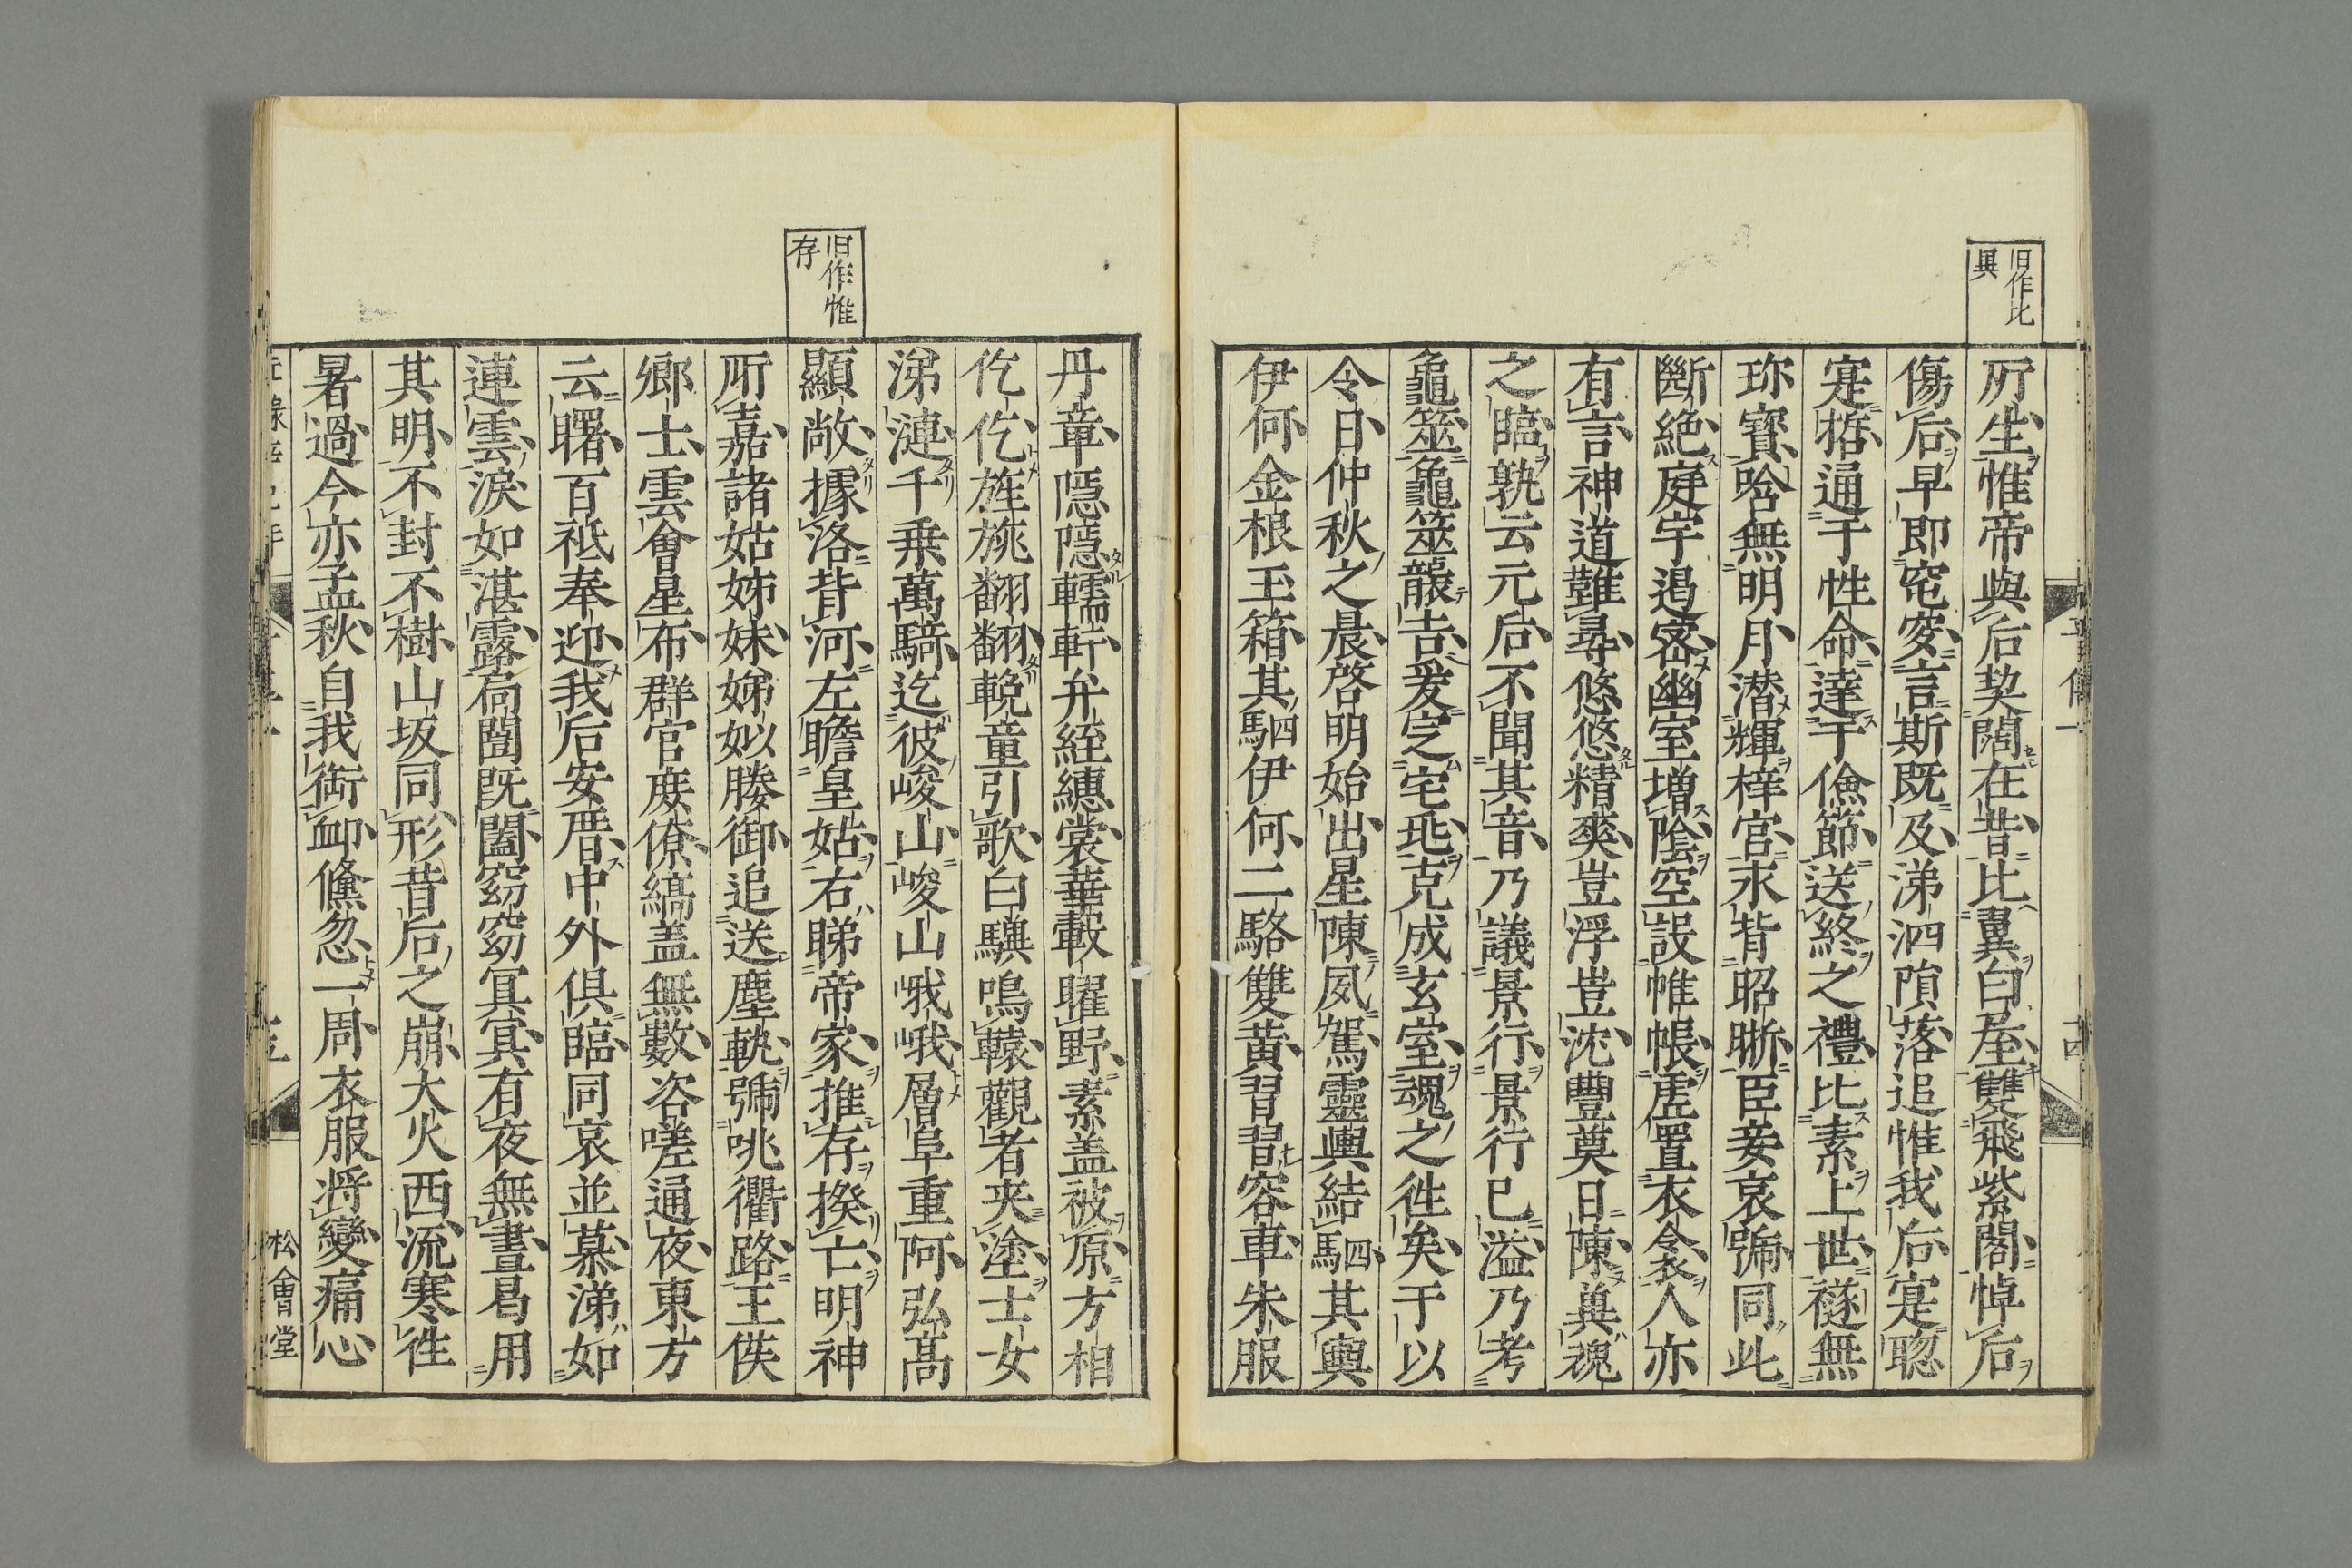 旧作比
異
所生惟帝與后契闊在昔比翼白屋雙飛紫閣悼后
傷后早即窀穸言斯既及涕泗隕落追惟我后寔聰
寔哲通于性命達于儉節送終之禮比素上世襚無
珎寶唅無明月潜輝梓宮永背昭晰臣妾哀號同此
斷絶庭宇遏宻幽室増陰空設帷帳虗置衣衾人亦
有言神道難尋悠悠精爽豈浮豈沈豐奠日陳兾魂
之臨孰云元后不聞其音乃議景行景行已溢乃考
龜筮龜筮襲吉爰定宅兆克成玄室魂之徃矣于以
令日仲秋之晨啓明始出星陳夙駕靈輿結駟其輿
伊何金根玉箱其駟伊何二駱雙黄習習容車朱服
丹章隱隱轜軒弁絰繐裳華轂曜野素盖被原方相
仡仡旌旐翻翻輓童引歌白驥鳴轅觀者夹塗士女
涕漣千乗萬騎迄彼峻山峻山峨峨層阜重阿弘髙
旧作惟
存
顯敞據洛背河左瞻皇姑右睇帝家推存揆亡明神
所嘉諸姑姊妹娣姒媵御追送塵軌號咷衢路王侯
鄉士雲會星布群官庶僚縞盖無數咨嗟通夜東方
云曙百祗奉迎我后安厝中外俱臨同哀並慕涕如
連雲淚如湛露扃闔既闔窈窈冥冥有夜無晝曷用
其明不封不樹山坂同形昔后之崩大火西流寒徃
暑過今亦孟秋自我銜卹儵忽一周衣服将變痛心
松會堂